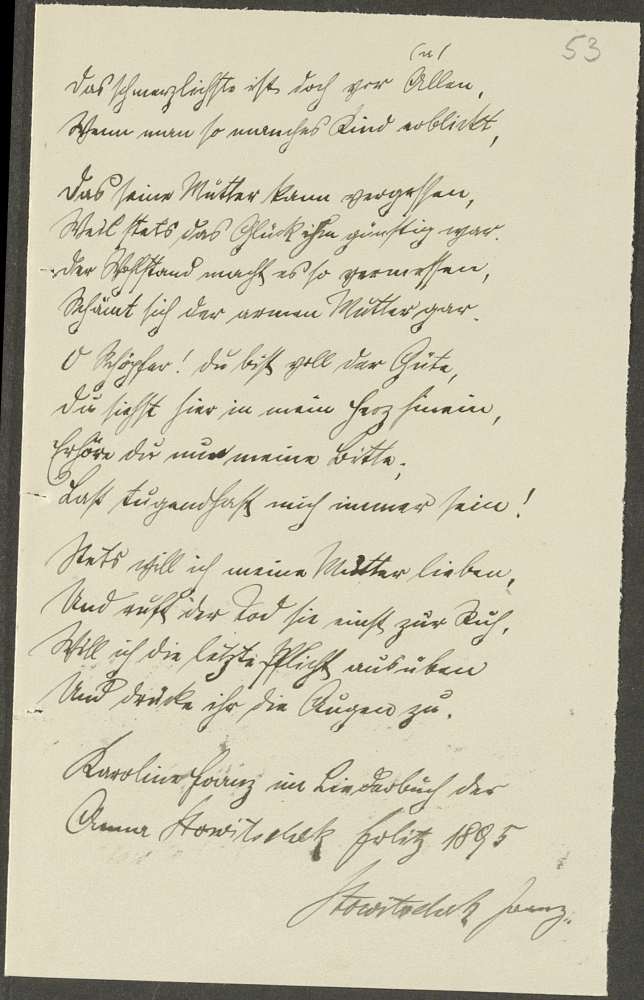 53
(n)
Das schmerzlichste ist doch vor Allen,
Wenn man so manches Kind erblickt,
Das seine Mutter kann vergessen,
Weil stets das Glück ihm günstig war.
Der Wohlstand macht es so vermessen,
Schämt sich der armen Mutter gar.
O Schöpfer! du bist voll der Güte,
Du siehst hier in mein Herz hinein,
Erhöre du nur meine Bitte,
Laß tugendhaft mich immer sein!
Stets will ich meine Mutter lieben,
Und ruft der Tod sie einst zur Ruh,
Will ich die letzte Pflicht ausüben
Und drücke ihr die Augen zu.
Karoline Franz im Liederbuch der
Anna 1895